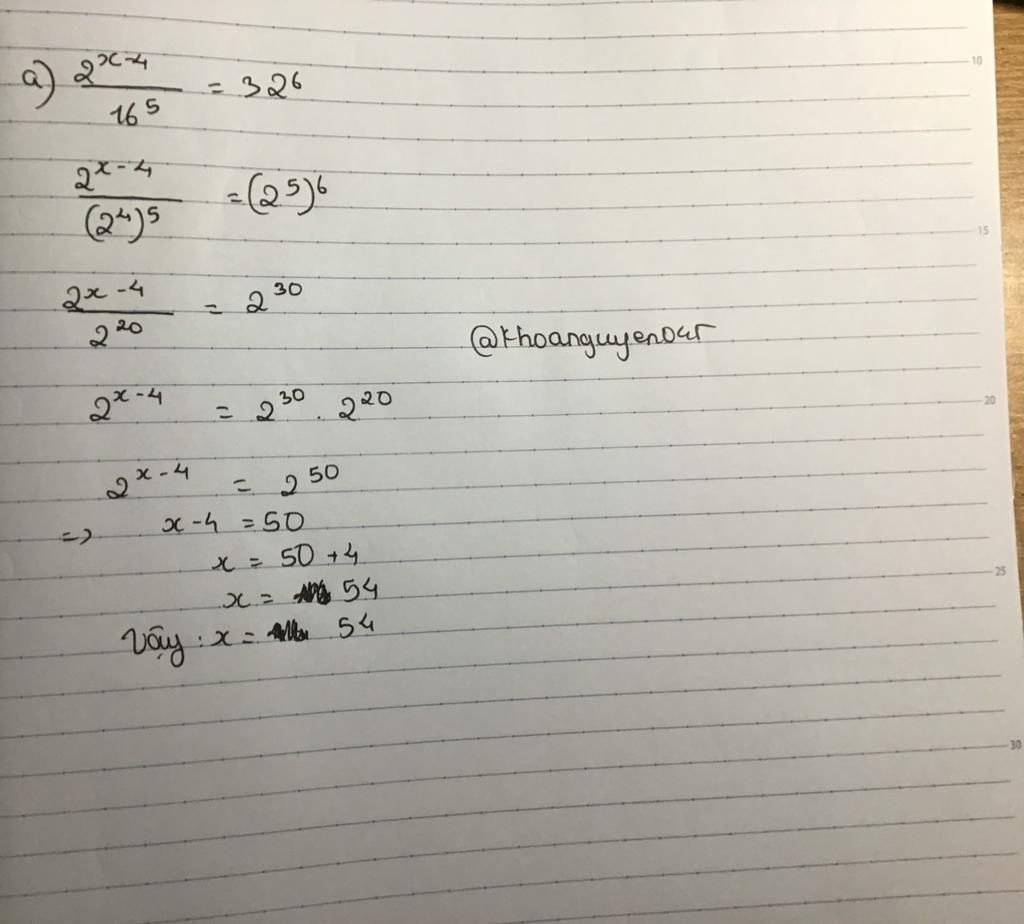 a) 2^(x-4) / 16^5 = 32^6
2^(x-4) / (2^4)^5 = (2^5)^6
2^(x-4) / 2^20 = 2^30
@khoanguyen0ur
2^(x-4) = 2^30 . 2^20
2^(x-4) = 2^50
=> x-4 = 50
x = 50 + 4
x = 54
Vậy : x = 54
10
15
20
25
30